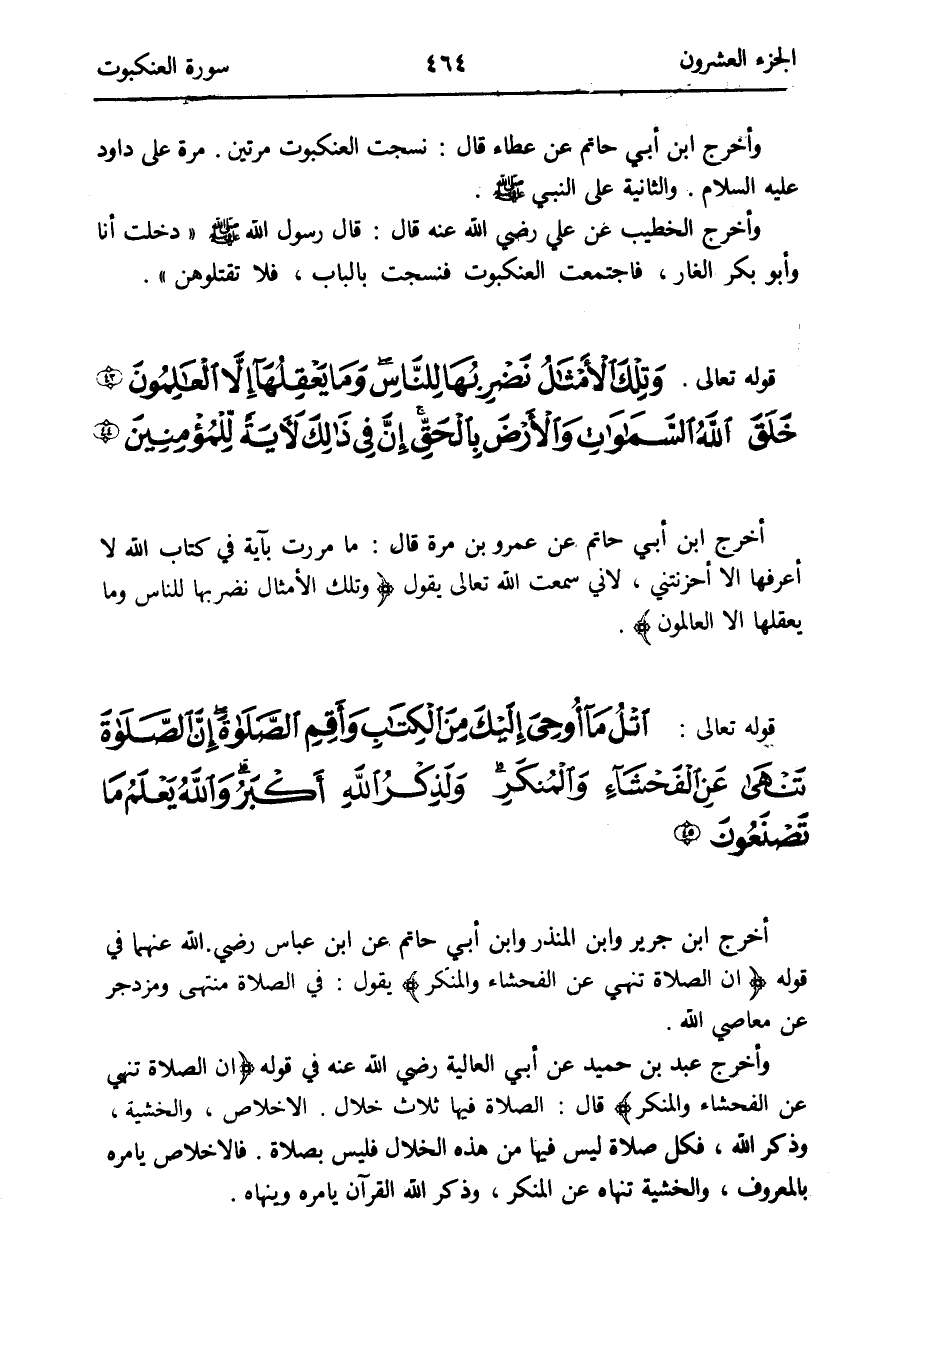 الجزء العشرون
٤٦٤
سورة العنكبوت
وأخرج ابن أبي حاتم عن عطاء قال : نسجت العنكبوت مرتين . مرة على داود
عليه السلام . والثانية على النبي ﷺ .
وأخرج الخطيب عن علي رضي الله عنه قال : قال رسول الله ﷺ « دخلت أنا
وأبو بكر الغار ، فاجتمعت العنكبوت فنسجت بالباب ، فلا تقتلوهن » .
قوله تعالى . وَتِلْكَ ٱلْأَمْثَٰلُ نَضْرِبُهَا لِلنَّاسِۖ وَمَا يَعْقِلُهَآ إِلَّا ٱلْعَٰلِمُونَ ٤٣
خَلَقَ ٱللَّهُ ٱلسَّمَٰوَٰتِ وَٱلْأَرْضَ بِٱلْحَقِّۚ إِنَّ فِى ذَٰلِكَ لَأٓيَةً لِّلْمُؤْمِنِينَ ٤٤
أخرج ابن أبي حاتم عن عمرو بن مرة قال : ما مررت بآية في كتاب الله لا
أعرفها الا أحزنتني ، لاني سمعت الله تعالى يقول ﴿ وتلك الأمثال نضربها للناس وما
يعقلها الا العالمون ﴾ .
قوله تعالى : ٱتْلُ مَآ أُوحِىَ إِلَيْكَ مِنَ ٱلْكِتَٰبِ وَأَقِمِ ٱلصَّلَوٰةَۖ إِنَّ ٱلصَّلَوٰةَ
تَنْهَىٰ عَنِ ٱلْفَحْشَآءِ وَٱلْمُنكَرِۗ وَلَذِكْرُ ٱللَّهِ أَكْبَرُۗ وَٱللَّهُ يَعْلَمُ مَا
تَصْنَعُونَ ٤٥
أخرج ابن جرير وابن المنذر وابن أبي حاتم عن ابن عباس رضي الله عنهما في
قوله ﴿ ان الصلاة تنهي عن الفحشاء والمنكر ﴾ يقول : في الصلاة منتهى ومزدجر
عن معاصي الله .
وأخرج عبد بن حميد عن أبي العالية رضي الله عنه في قوله ﴿ ان الصلاة تنهي
عن الفحشاء والمنكر ﴾ قال : الصلاة فيها ثلاث خلال . الاخلاص ، والخشية ،
وذكر الله ، فكل صلاة ليس فيها من هذه الخلال فليس بصلاة . فالاخلاص يامره
بالمعروف ، والخشية تنهاه عن المنكر ، وذكر الله القرآن يامره وينهاه .